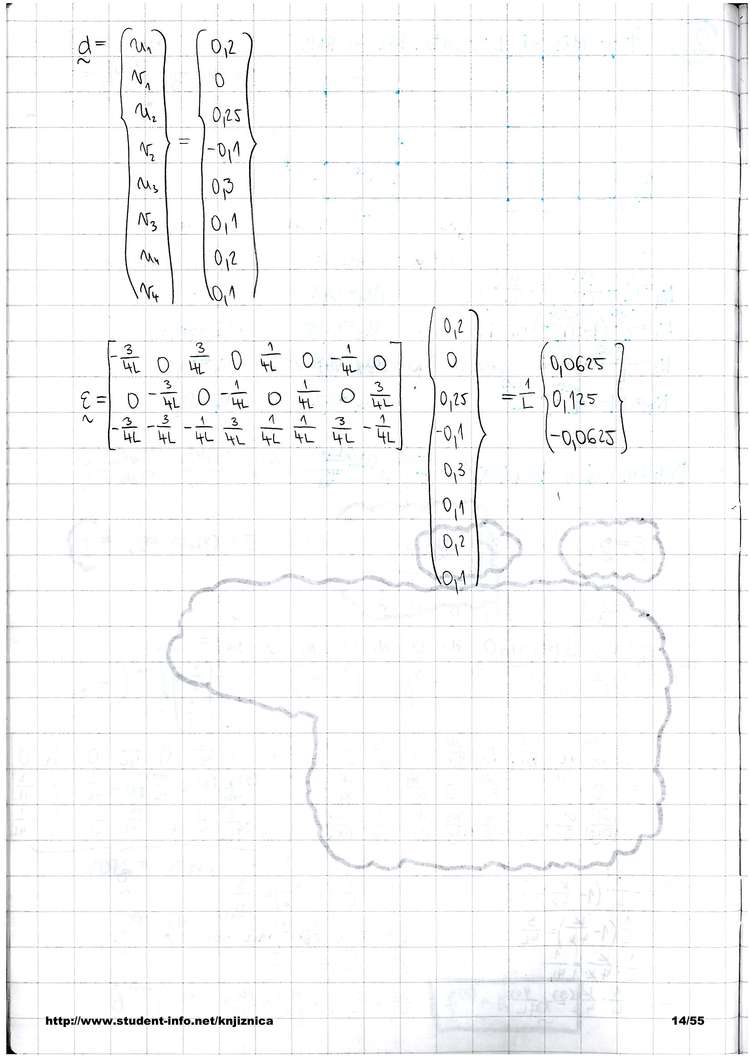 d = {u₁ v₁ u₂ v₂ u₃ v₃ u₄ v₄} = {0,2 0 0,25 -0,1 0,3 0,1 0,2 0,1}
ε = [-3/4L 0 3/4L 0 1/4L 0 -1/4L 0
0 -3/4L 0 -1/4L 0 1/4L 0 3/4L
-3/4L -3/4L -1/4L 3/4L 1/4L 1/4L 3/4L -1/4L] · {0,2 0 0,25 -0,1 0,3 0,1 0,2 0,1} = 1/L {0,0625 0,125 -0,0625}
http://www.student-info.net/knjiznica
14/55